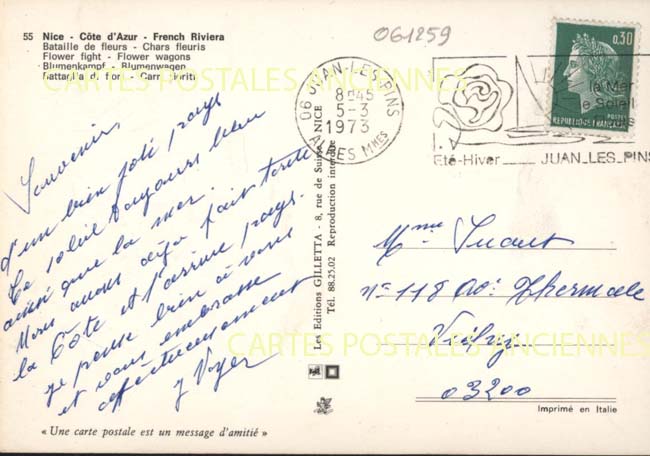 55 Nice - Côte d'Azur - French Riviera
Bataille de fleurs - Chars fleuris
Flower fight - Flower wagons
Blumenkampf - Blumenwagen
Battaglia di fiori - Carri fioriti
Souvenirs
d'un bien joli pays
Le soleil toujours bleu
ainsi que la mer.
Nous avons déjà fait toute
la Côte et l'arrière pays.
je pense bien à vous
et vous embrasse
affectueusement
J Voyer
« Une carte postale est un message d'amitié »
Les Editions GILLETTA - 8, rue de Suisse, NICE
Tél. 88.25.02 Reproduction interdite
061259
06 JUAN-LES-PINS
8H45
5-3
1973
ALPES MMES
la Mer
le Soleil
Eté-Hiver JUAN_LES_PINS
0,30
REPUBLIQUE FRANÇAISE
POSTES
Mme
N° 118 av. Thermale
Vichy
03200
Imprimé en Italie
CARTES POSTALES ANCIENNES
CARTES POSTALES ANCIENNES